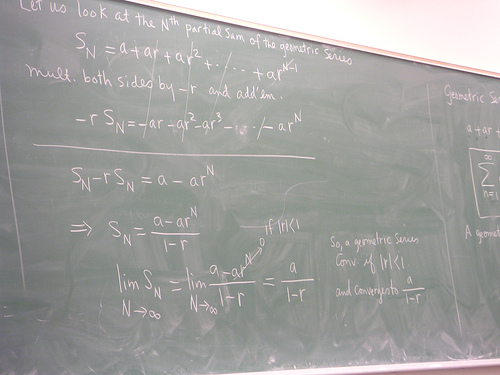 Let us look at the Nth partial sum of the geometric series
S_N = a + ar + ar² + ····· + ar^(N-1)
mult. both sides by -r and add'em.
-r S_N = -ar - ar² - ar³ - ··· - ar^N
S_N - r S_N = a - ar^N
⇒ S_N = (a - ar^N)/(1-r)
if |r|<1
0
lim_(N→∞) S_N = lim_(N→∞) (a - ar^N)/(1-r) = a/(1-r)
So, a geometric series
Conv. if |r|<1
and converges to a/(1-r)
Geometric
a + ar
∞
Σ
n=1
A